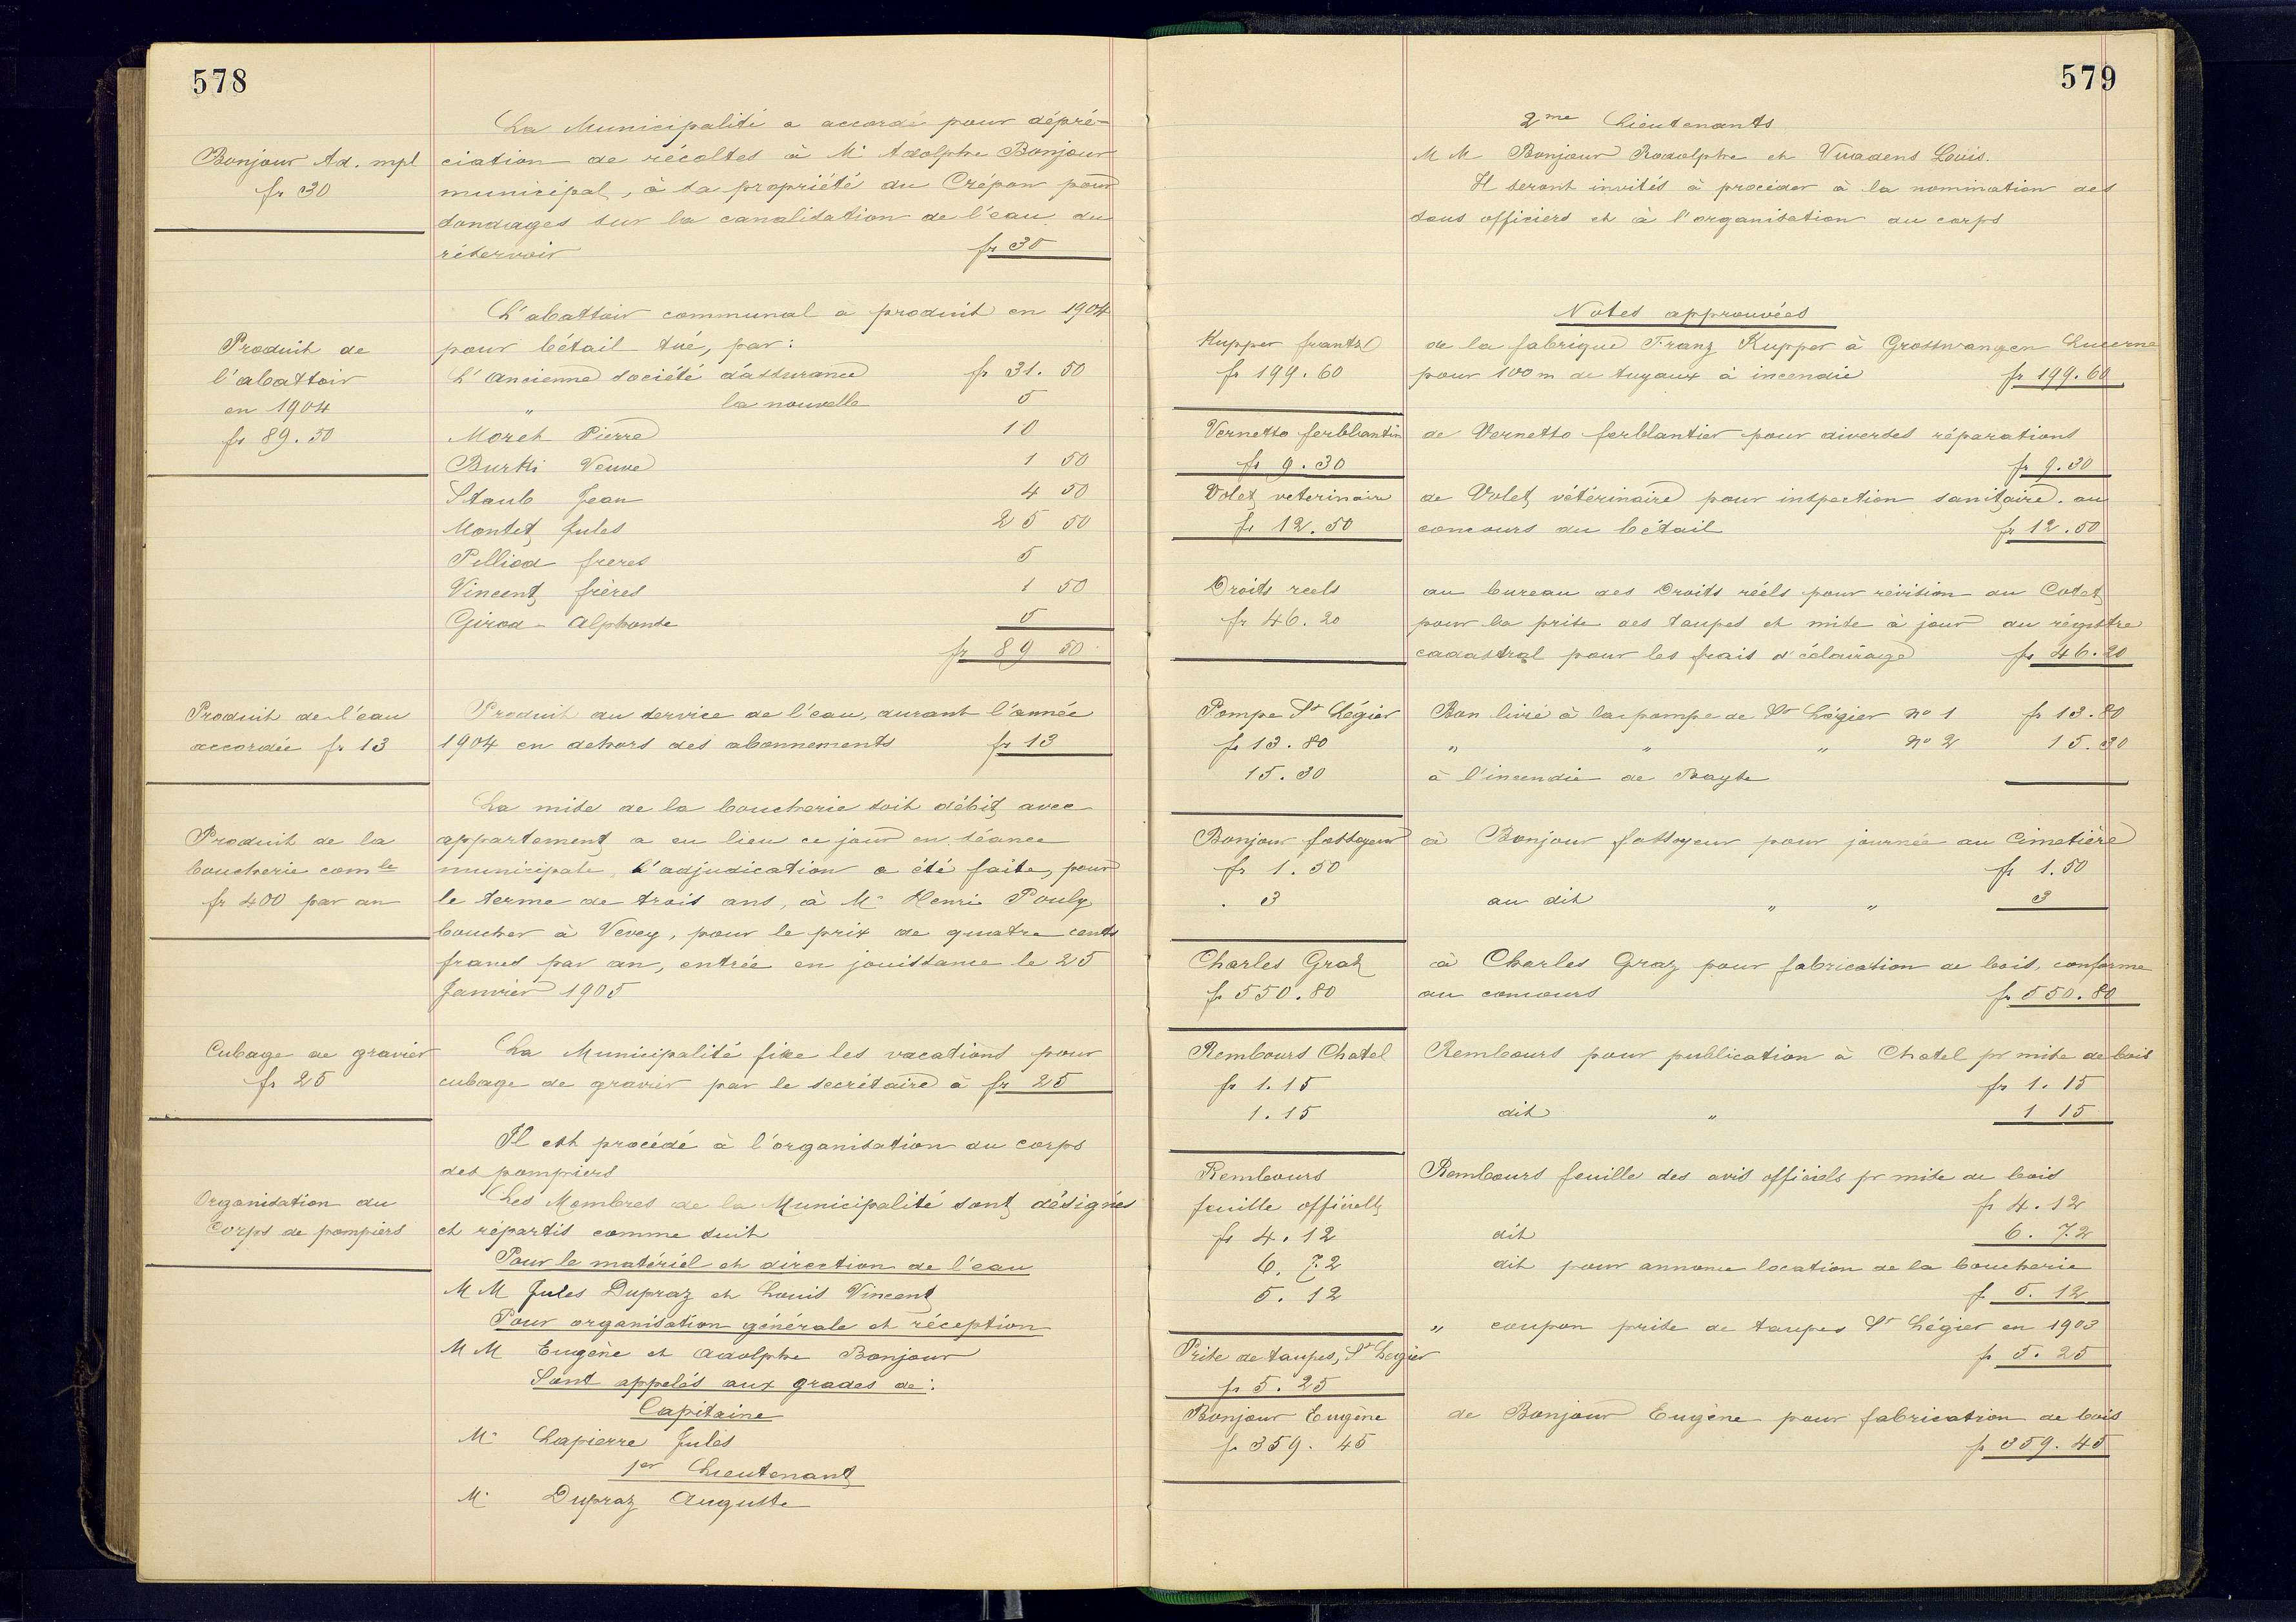 578
La Municipalité a accordé pour dépré-
Bonjour Ad. mpl
fr 30
ciation de récoltes à Mr Adolphe Bonjour
municipal, à sa propriété du Crépon pour
sondages sur la canalisation de l'eau du
réservoir fr 30
L'abattoir communal a produit en 1904
Produit de
l'abattoir
en 1904
fr 89.50
pour bétail tué, par:
L'Ancienne société d'assurance fr 31. 50
" la nouvelle 5
Moret Pierre 10
Burki Veuve 1 50
Staub Jean 4 50
Montet Jules 25 50
Pilliod freres 5
Vincent frères 1 50
Girod Alphonse 5
fr 89 50
Produit de l'eau
accordée fr 13
Produit du service de l'eau, durant l'année
1904 en dehors des abonnements fr 13
La mise de la boucherie soit débit avec
Produit de la
boucherie comle
fr 400 par an
appartement a eu lieu ce jour en séance
municipale, L'adjudication a été faite, pour
le terme de trois ans, à Mr Henri Pouly
boucher à Vevey, pour le prix de quatre cents
francs par an, entrée en jouissance le 25
Janvier 1905
Cubage de gravier
fr 25
La Municipalité fixe les vacations pour
cubage de gravier par le secrétaire à fr 25
Il est procédé à l'organisation du corps
des pompiers
Organisation du
Corps de pompiers
Les Membres de la Municipalité sont désignés
et répartis comme suit
Pour le matériel et direction de l'eau
M M Jules Dupraz et Louis Vincent
Pour organisation générale et réception
M M Eugène et Adolphe Bonjour
Sont appelés aux grades de:
Capitaine
Mr Lapierre Jules
1er Lieutenant
Mr Dupraz Auguste
579
2me Lieutenants
M M Bonjour Rodolphe et Vuadens Louis.
Il seront invités à procéder à la nomination des
sous officiers et à l'organisation du corps
Notes approuvées
Kupper frantz
fr 199.60
de la fabrique Franz Kupper à Grosswangen Lucerne
pour 100 m de tuyaux à incendie fr 199.60
Vernetto ferblantin
fr 9.30
de Vernetto ferblantier pour diverses réparations
fr 9.30
Volet veterinaire
fr 12.50
de Volet vétérinaire pour inspection sanitaire. au
concours du bétail fr 12.50
Droits reels
fr 46.20
au bureau des Droits réels pour révision du Cotet
pour la prise des taupes et mise à jour du régistre
cadastral pour les frais d'éclairage fr 46.20
Pompe St Légier
fr 13.80
15.30
Bon livré à la pompe de St Légier no 1 fr 13.80
" " " no 2 15.30
à l'incendie de
Bonjour fossoyeur
fr 1.50
. 3
à Bonjour fossoyeur pour journée au Cimetière
fr 1.50
au dit " " 3
Charles Graz
fr 550.80
à Charles Graz pour fabrication de bois, conforme
au concours fr 550.80
Rembours Chatel
fr 1.15
1.15
Rembours pour publication à Chatel pr mise de bois
fr 1. 15
dit " 1 15
Rembours
feuille officielle
fr 4.12
6. 72
5. 12
Rembours feuille des avis officiels pr mise de bois
fr 4.12
dit 6. 72
dit pour annonce location de la boucherie
f 5. 12
Prise de taupes, St Legier
fr 5.25
" coupon prise de taupes St Légier en 1903
fr 5. 25
Bonjour Eugène
fr 359. 45
de Bonjour Eugène pour fabrication de bois
fr 359. 45